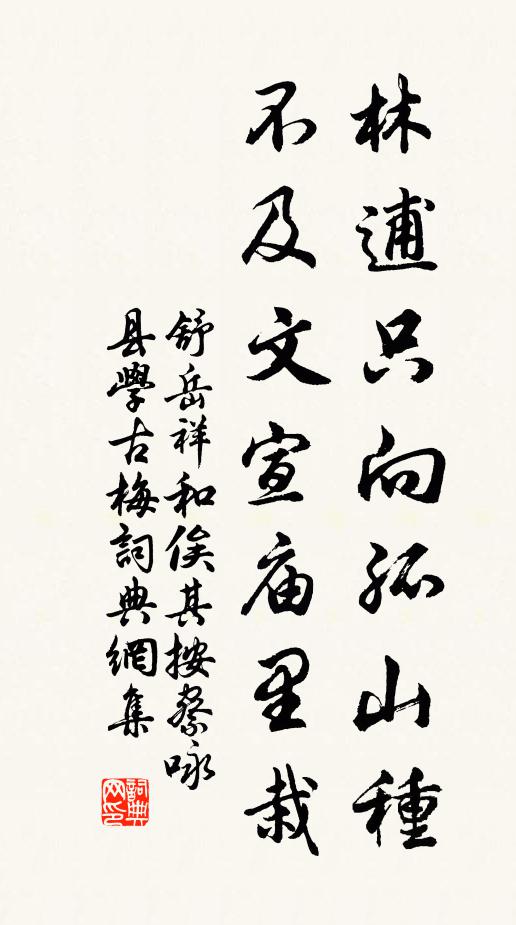 林逋只向孤山種
不及文宣庙里栽
舒岳祥和俟其按察咏
县學古梅詞典網集
詞典网印